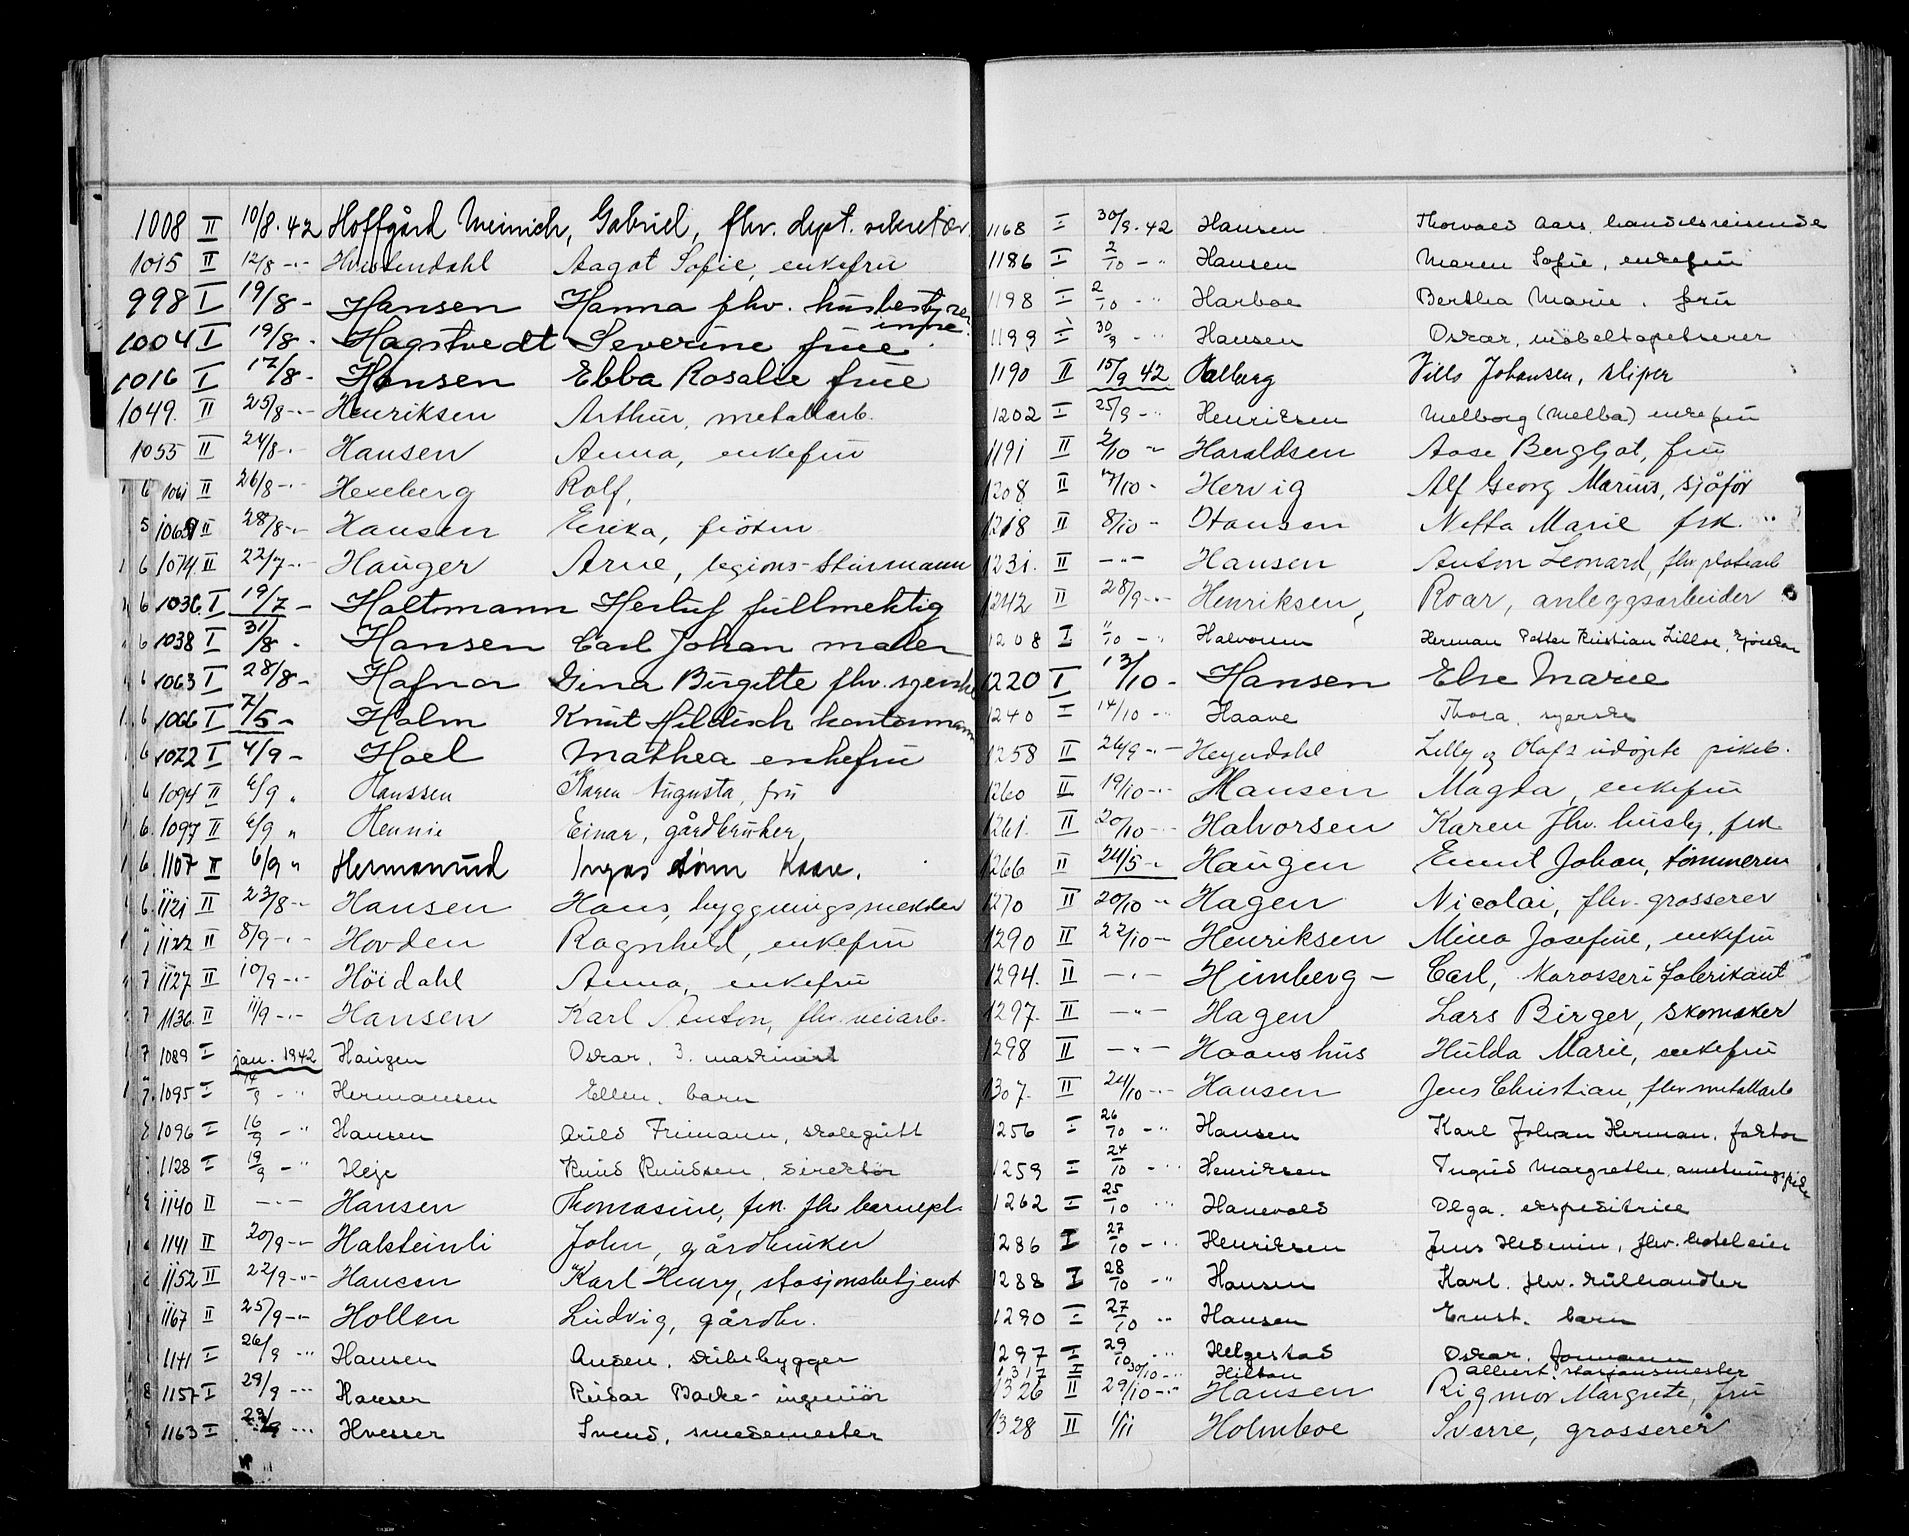 1008 II 10/8. 42 Hoffgård Meinich, Gabriel, fhv. dept. sekretær.
1015 II 12/8 -"- Aagot Sofie, enkefru
998 I 19/8 - Hansen Hanna fhv. husbestyrerinne.
1004 I 19/8 - Hagstvedt Severine frue
1016 I 17/8 - Hansen Ebba Rosalie frue
1049. II 25/8 -"- Henriksen Arthur, metallarb.
1055 II 24/8 -"- Hansen Anna, enkefru
1061 II 26/8 -"- Hexeberg Rolf,
1065 II 28/8 -"- Hansen Erika, frøken
1074 II 22/7 -"- Hauger Arne, legions-Sturmann
1036. I 19/7 - Holtmann Herluf fullmektig
1038 I 31/8 - Hansen Carl Johan maler
1063 I 28/8 - Hafnor Gina Birgitte fhv. syerske
1066 I 7/5 - Holm Knut Hilditch kontormann
1072 I 4/9 - Hoel Mathea enkefru
1094 II 6/9 " Hanssen Karen Augusta, fru
1097 II 6/9 " Hennie Einar, gårdbruker,
1107 II 6/9 " Hermanrud Ingas sønn Kaare.
1121 II 23/8 -"- Hansen Hans, byggningssnekker
1122 II 8/9 -"- Hovden Ragnhild, enkefru
1127 II 10/9 -"- Höidahl Anna, enkefru
1136. II 11/9 -"- Hansen Karl Anton, fhv. veiarb.
1089 I jan. 1942 Haugen Oskar, 3. maskinist
1095 I 14/9 - " Hermansen Ellen. barn
1096 I 16/9 - " Hansen Arild Frimann, skolegutt
1128 I 19/9 - " Heje Knud Knudsen, direktør
1140 II -"- Hansen Thomasine, frk. fhv barnepl.
1141 II 20/9 -"- Halsteinli John, gårdbruker
1152 II 22/9 -"- Hansen Karl Henry, stasjonsbetjent
1167 II 25/9 -"- Hollen Ludvig, gårdbr.
1141 I 26/9 -"- Hansen Ansen, skibsbygger
1157 I 29/9 -"- Hauser Reidar Backe - ingeniør
1163 I 29/9 -"- Hvesser Svend, smedemester
1168 I 30/9. 42 Hansen Thorvald Aars, handelsreisende
1186 I 2/10 - " Hansen Maren Sofie, enkefru
1198 I 2/10 - " Harboe Bertha Marie, fru
1199 I 30/9 - " Hansen Oskar, möbeltapetserer
1190 II 15/9 42 Johansen, sliper
1202 I 25/9 - " Henriksen Melborg (Melba) enkefru
1191 II 2/10 - Haraldsen Aase Bergljot, fru
1208 II 7/10 - Hervig Alf Georg Marius, sjåför
1218 II 8/10 - Hansen Netta Marie frk.
1231. II -"- Hansen Anton Leonard, fhv. platearb
1242 II 28/9 -"- Henriksen, Roar, anleggsarbeider
1208 I 11/10 - " Halvorsen Herman Petter Kristian Lilloe,
1220 I 13/10 - Hansen Else Marie
1240 I 14/10 - " Haave Thora, syerske
1258 II 26/9 -"- Heyerdahl Lilly og Olafs udøpte pikeb.
1260 II 19/10 -"- Hansen Magda, enkefru
1261. II 20/10 -"- Halvorsen Karen fhv. husby. frk.
1266 II 24/5 -"- Haugen Emil Johan, tömmerm
1270 II 20/10 -"- Hagen Nicolai, fhv. grosserer
1290 II 22/10 - Henriksen Mina Josefine, enkefru
1294. II -"- Himberg - Carl, Karosserifabrikant
1297. II -"- Hagen Lars Birger, skomaker
1298 II -"- Haanshus Hulda Marie, enkefru
1307. II 24/10 -"- Hansen Jens Christian, fhv metallarb
1256 I 26/10 - " Hansen Karl Johan Herman, faktor
1259 I 24/10 - " Henriksen Ingrid Margrethe, anretningspike
1262 I 25/10 " Hanevold Olga, ekspeditrice
1286 I 27/10 - " Henriksen Jens Hedenin, fhv. hoteleier
1288 I 28/10 - " Hansen Karl, fhv. kullhandler
1290 I 27/10 " Hansen Ernst, barn
1297 I 29/10 " Helgestad Oskar, formann
1317 I 30/10 -"- Hilton Albert, stasjonsmester
1326 II 29/10 -"- Hansen Rigmor Margrete, fru
1328 II 1/11 Holmboe Sverre, grosserer